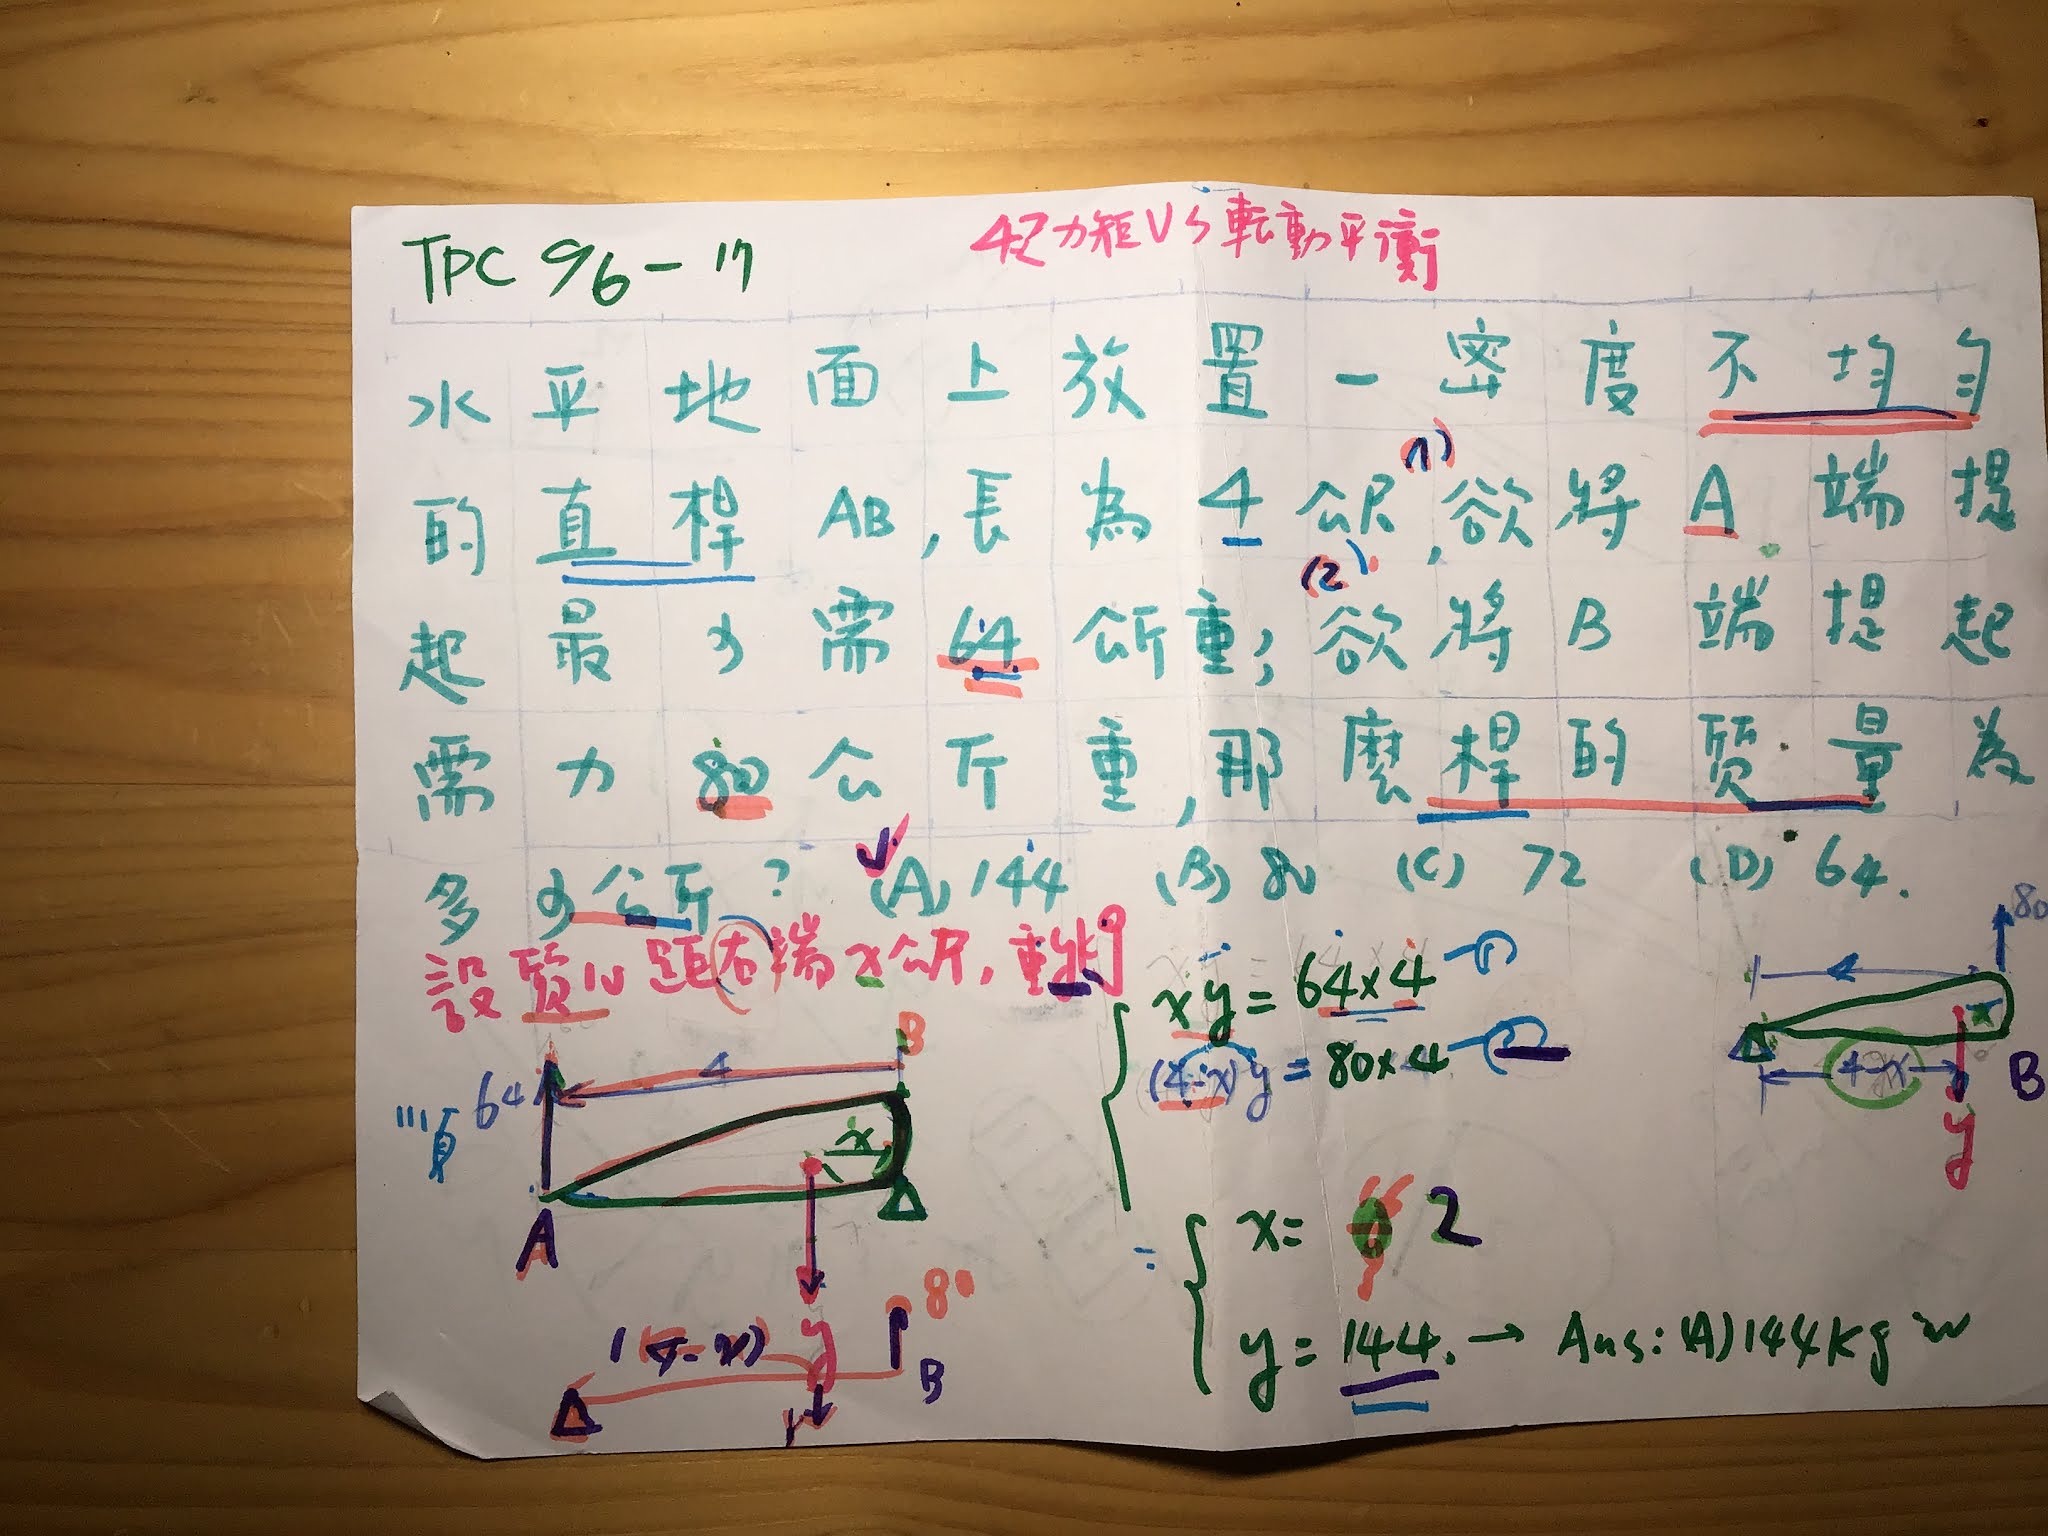 TPC 96-17
力矩VS転動平衡
水平地面上放置一密度不均勻
的直桿AB,長為4公尺,欲將A端提
(1)
(2)
起最少需64公斤重;欲將B端提起
需力80公斤重,那麼桿的質量為
多少公斤? (A) 144 (B) 80 (C) 72 (D) 64.
設質心距右端x公尺,重
xy=64×4 ①
(4-x)y=80×4 ②
80
4
x
4-x
y
B
B
4
64
x
A
y
(4-x)
80
B
x= 2
y=144. → Ans: (A) 144 kgw